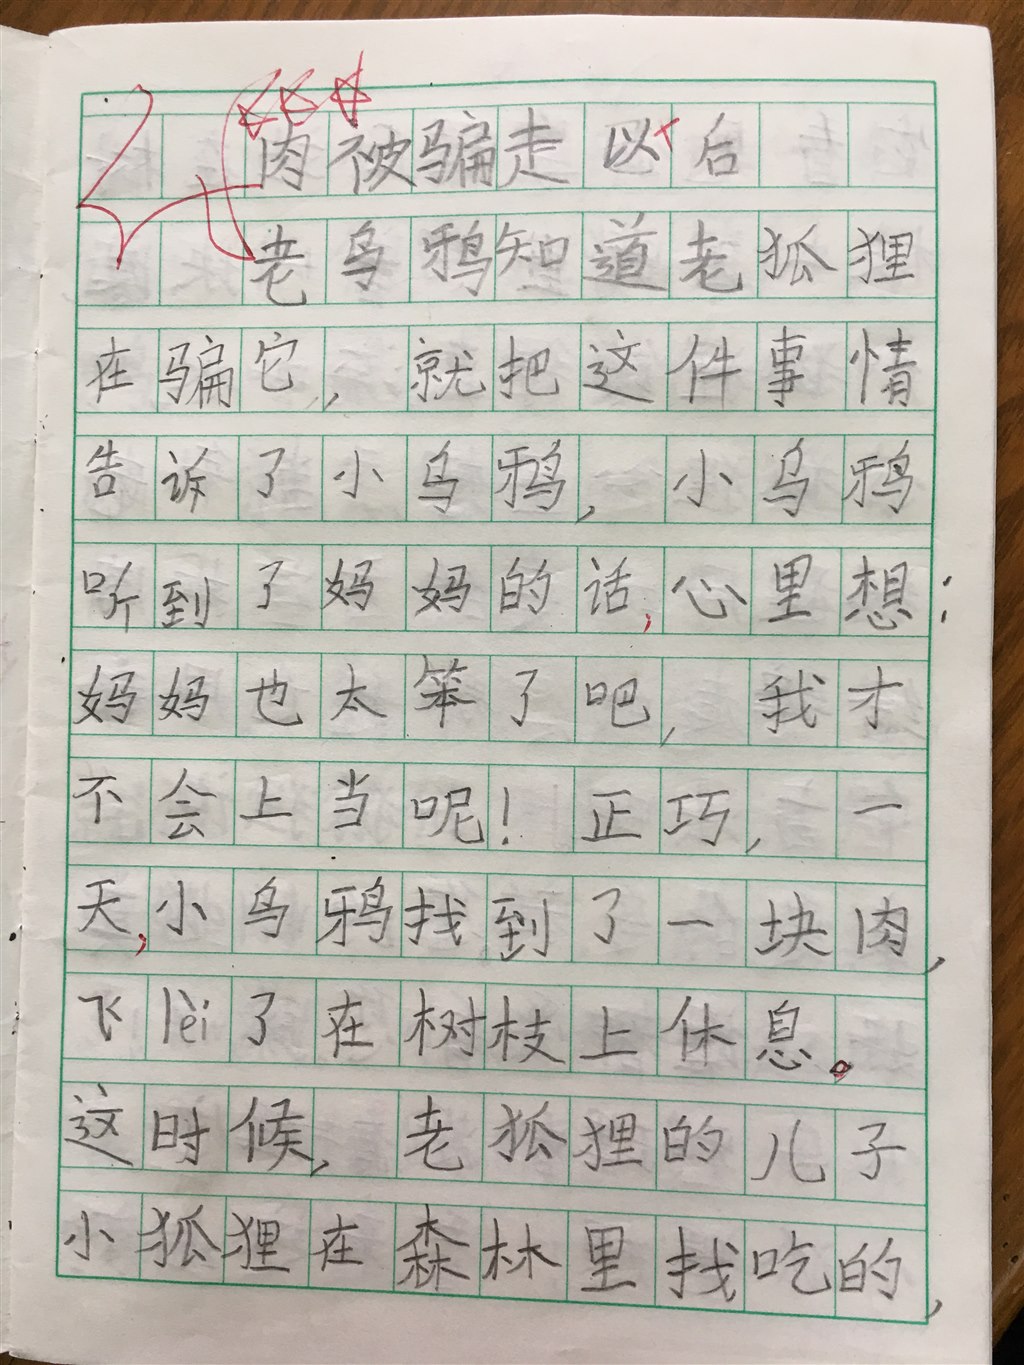 肉被骗走以后
老乌鸦知道老狐狸
在骗它，就把这件事情
告诉了小乌鸦，小乌鸦
听到了妈妈的话，心里想：
妈妈也太笨了吧，我才
不会上当呢！正巧，一
天，小乌鸦找到了一块肉，
飞lèi了在树枝上休息。
这时候，老狐狸的儿子
小狐狸在森林里找吃的，